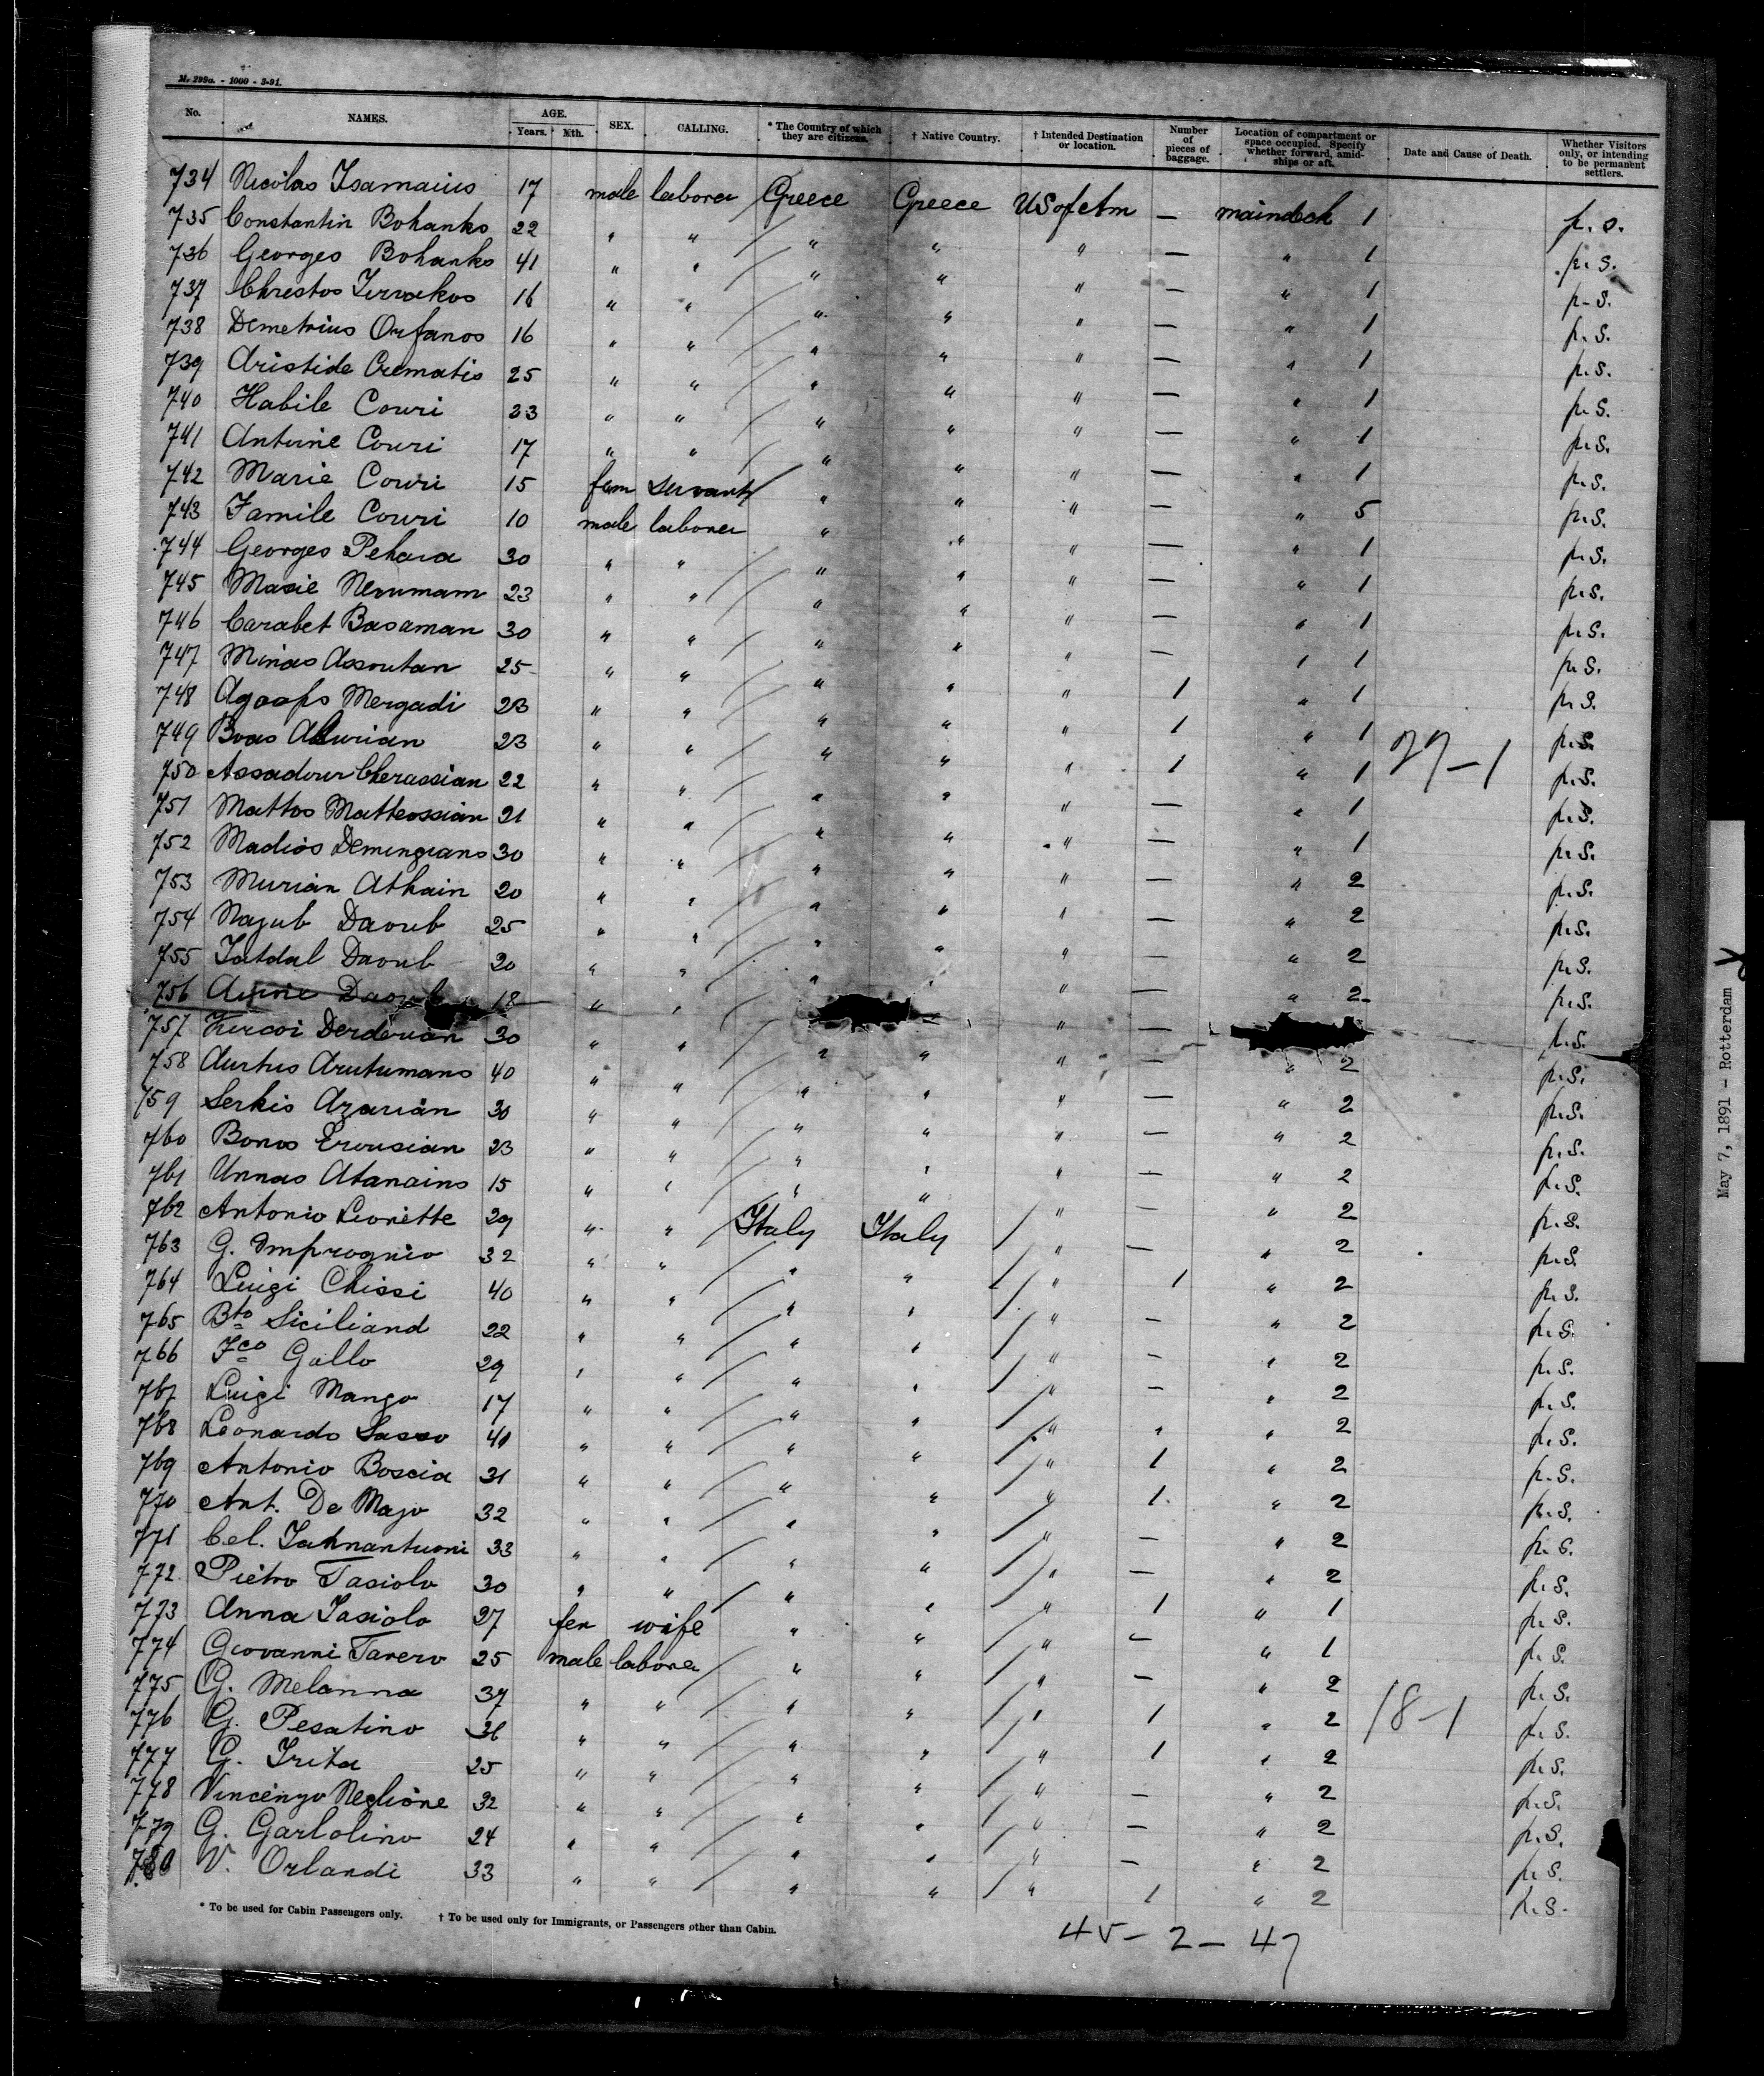 M. 299a. - 1000 - 3-91.
No. NAMES. AGE. Years. Mth. SEX. CALLING. * The Country of which they are citizens. † Native Country. † Intended Destination or location. Number of pieces of baggage. Location of compartment or space occupied. Specify whether forward, amidships or aft. Date and Cause of Death. Whether Visitors only, or intending to be permanent settlers.
734 Nicolas Tsamairis 17 male laborer Greece Greece US of Am — maindeck 1 p. s.
735 Constantin Bohanko 22 " " " " " — " 1 p. s.
736 Georges Bohanko 41 " " " " " — " 1 p. s.
737 Chrestos 16 " " " " " — " 1 p. s.
738 Demetrius Orfanos 16 " " " " " — " 1 p. s.
739 Aristide Crematis 25 " " " " " — " 1 p. s.
740 Habile Couri 23 " " " " " — " 1 p. s.
741 Antoine Couri 17 " " " " " — " 1 p. s.
742 Marie Couri 15 fem servant " " " — " 5 p. s.
743 Famile Couri 10 male laborer " " " — " 1 p. s.
744 Georges Pehara 30 " " " " " — " 1 p. s.
745 Marie 23 " " " " " — " 1 p. s.
746 Carabet Basaman 30 " " " " " — " 1 p. s.
747 Minas Assoutan 25 " " " " " 1 " 1 p. s.
748 Agoops Mergadi 23 " " " " " 1 " 1 p. s.
749 Boas 23 " " " " " 1 " 1 27-1 p. s.
750 Assadour Cherassian 22 " " " " " — " 1 p. s.
751 Mattos Matteossian 21 " " " " " — " 1 p. s.
752 Madios Demingians 30 " " " " " — " 2 p. s.
753 Murian Athain 20 " " " " " — " 2 p. s.
754 Najub Daoub 25 " " " " " — " 2 p. s.
755 Tatdal Daoub 20 " " " " " — " 2 p. s.
756 Daoub 18 " " " p. s.
757 Derderian 30 " " " " " — " 2 p. s.
758 Aurtus Arutumans 40 " " " " " — " 2 p. s.
759 Serkis Azarian 30 " " " " " — " 2 p. s.
760 Bonos Erousian 23 " " " " " — " 2 p. s.
761 Unnas Atanains 15 " " " " " — " 2 p. s.
762 Antonio Leonette 29 " " Italy Italy " — " 2 p. s.
763 G. Imprognio 32 " " " " " 1 " 2 p. s.
764 Luigi Chissi 40 " " " " " — " 2 p. s.
765 Bto Siciliand 22 " " " " " — " 2 p. s.
766 Fco Gallo 29 " " " " " — " 2 p. s.
767 Luigi Mango 17 " " " " " " " 2 p. s.
768 Leonardo Sasso 41 " " " " " 1 " 2 p. s.
769 Antonio Boscia 31 " " " " " 1 " 2 p. s.
770 Ant. De Majo 32 " " " " " — " 2 p. s.
771 Cel. 33 " " " " " — " 2 p. s.
772 Pietro Tasiolo 30 " " " " " 1 " 1 p. s.
773 Anna Tasiolo 27 fem wife " " " — " 1 p. s.
774 Giovanni Tarero 25 male laborer " " " — " 2 p. s.
775 G. Melanna 37 " " " " " 1 " 2 18-1 p. s.
776 G. Pesatino 36 " " " " " 1 " 2 p. s.
777 G. Trita 25 " " " " " — " 2 p. s.
778 Vincenzo Neglione 32 " " " " " — " 2 p. s.
779 G. Garlolino 24 " " " " " — " 2 p. s.
780 V. Orlandi 33 " " " " " 1 " 2 p. s.
* To be used for Cabin Passengers only. † To be used only for Immigrants, or Passengers other than Cabin.
45 - 2 - 47
May 7, 1891 - Rotterdam